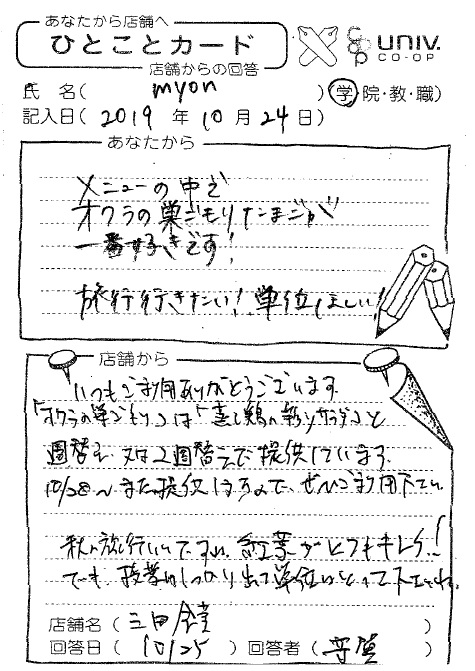 あなたから店舗へ
ひとことカード
店舗からの回答
UNIV.
CO-OP
氏 名( myon )㊫・院・教・職)
記入日( 2019 年 10 月 24 日)
あなたから
メニューの中で
オクラの巣ごもりたまごが
一番好きです!
旅行行きたい! 単位ほしい!
店舗から
いつもご利用ありがとうございます。
「オクラの巣ごもり」は「蒸し鶏の彩りサラダ」と
週替り、又は2週替えで提供しています。
10/28〜また提供しますので、ぜひご利用下さい
秋の旅行いいですね。紅葉がとてもキレイ!
でも、授業はしっかり出て単位とって下さいね。
店舗名( 三田食堂 )
回答日( 10/25 )回答者( )